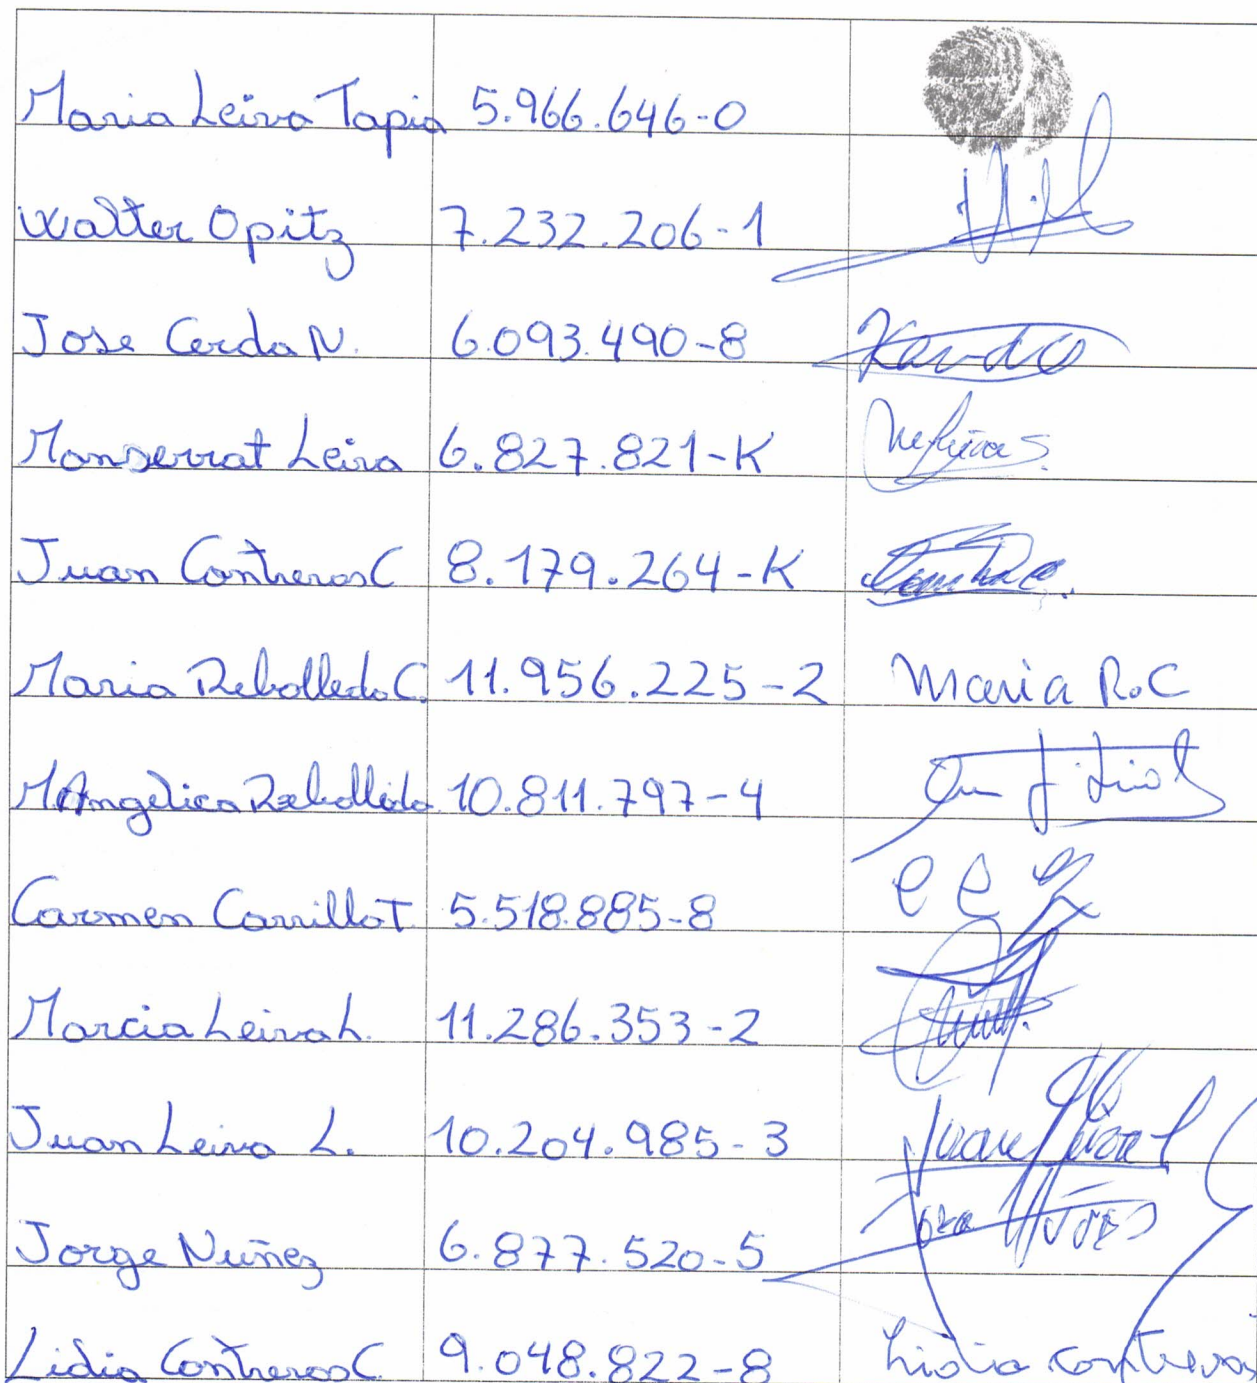 Maria Leiva Tapia 5.966.646-0
Walter Opitz 7.232.206-1
Jose Cerda N. 6.093.490-8
Monserrat Leiva 6.827.821-K
Juan Contreras C 8.179.264-K
Maria Rebolledo C. 11.956.225-2 Maria R.C
M Angelica Rebolledo 10.811.797-4
Carmen Carrillo T. 5.518.885-8
Marcia Leiva L. 11.286.353-2
Juan Leiva L. 10.204.985-3 Juan Leiva L
Jorge Nuñez 6.877.520-5
Lidia Contreras C. 9.048.822-8 Lidia Contreras